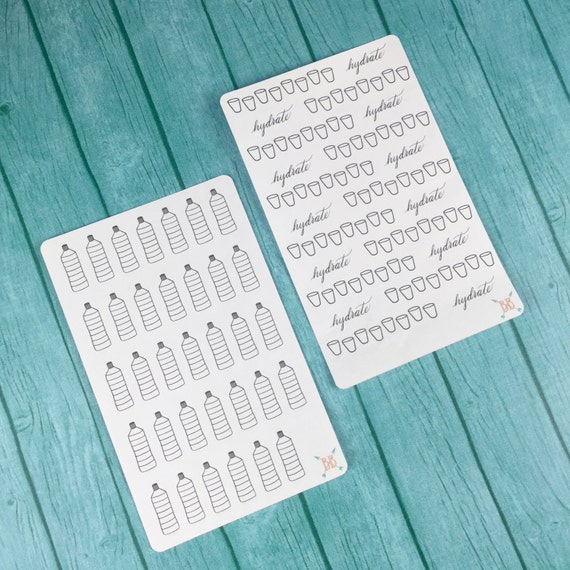 hydrate
hydrate
hydrate
hydrate
hydrate
hydrate
hydrate
hydrate
hydrate
hydrate
hydrate